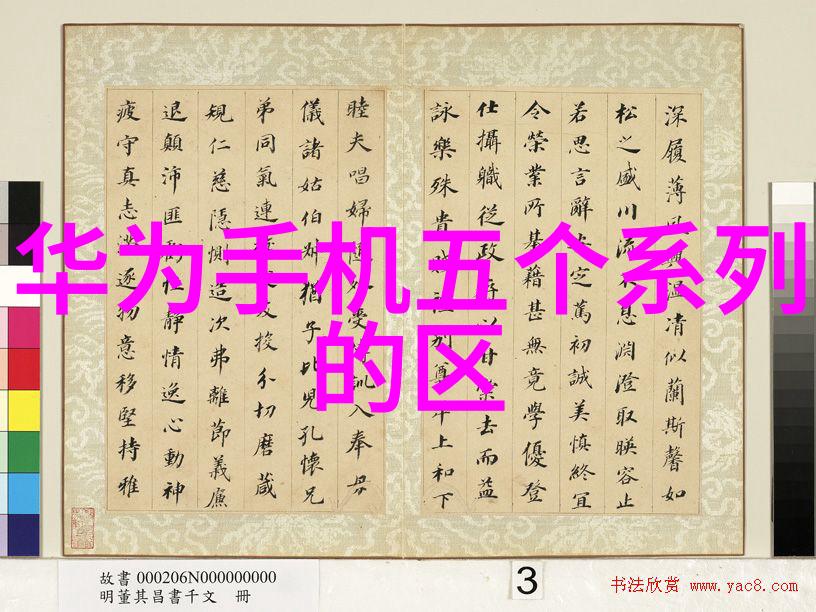 华为手机五个系列
的区
深履薄興温凊似蘭斯馨如
松之盛川流不息淵澄取暎容止
若思言辭安定篤初誠美慎終宜
令榮業所基籍甚無竟學優登
仕攝職從政存以甘棠去而益
詠樂殊貴別尊卑上和下
睦夫唱婦隨外受訓入奉母
儀諸姑伯叔猶子比兒孔懷兄
弟同氣連交友投分切磨箴
規仁慈隱惻造次弗離節義廉
退顛沛匪虧性靜情逸心動神
疲守真志滿逐物意移堅持雅
故書 000206N000000000
明董其昌書千文 冊
3
书法欣赏 www.yac8.com